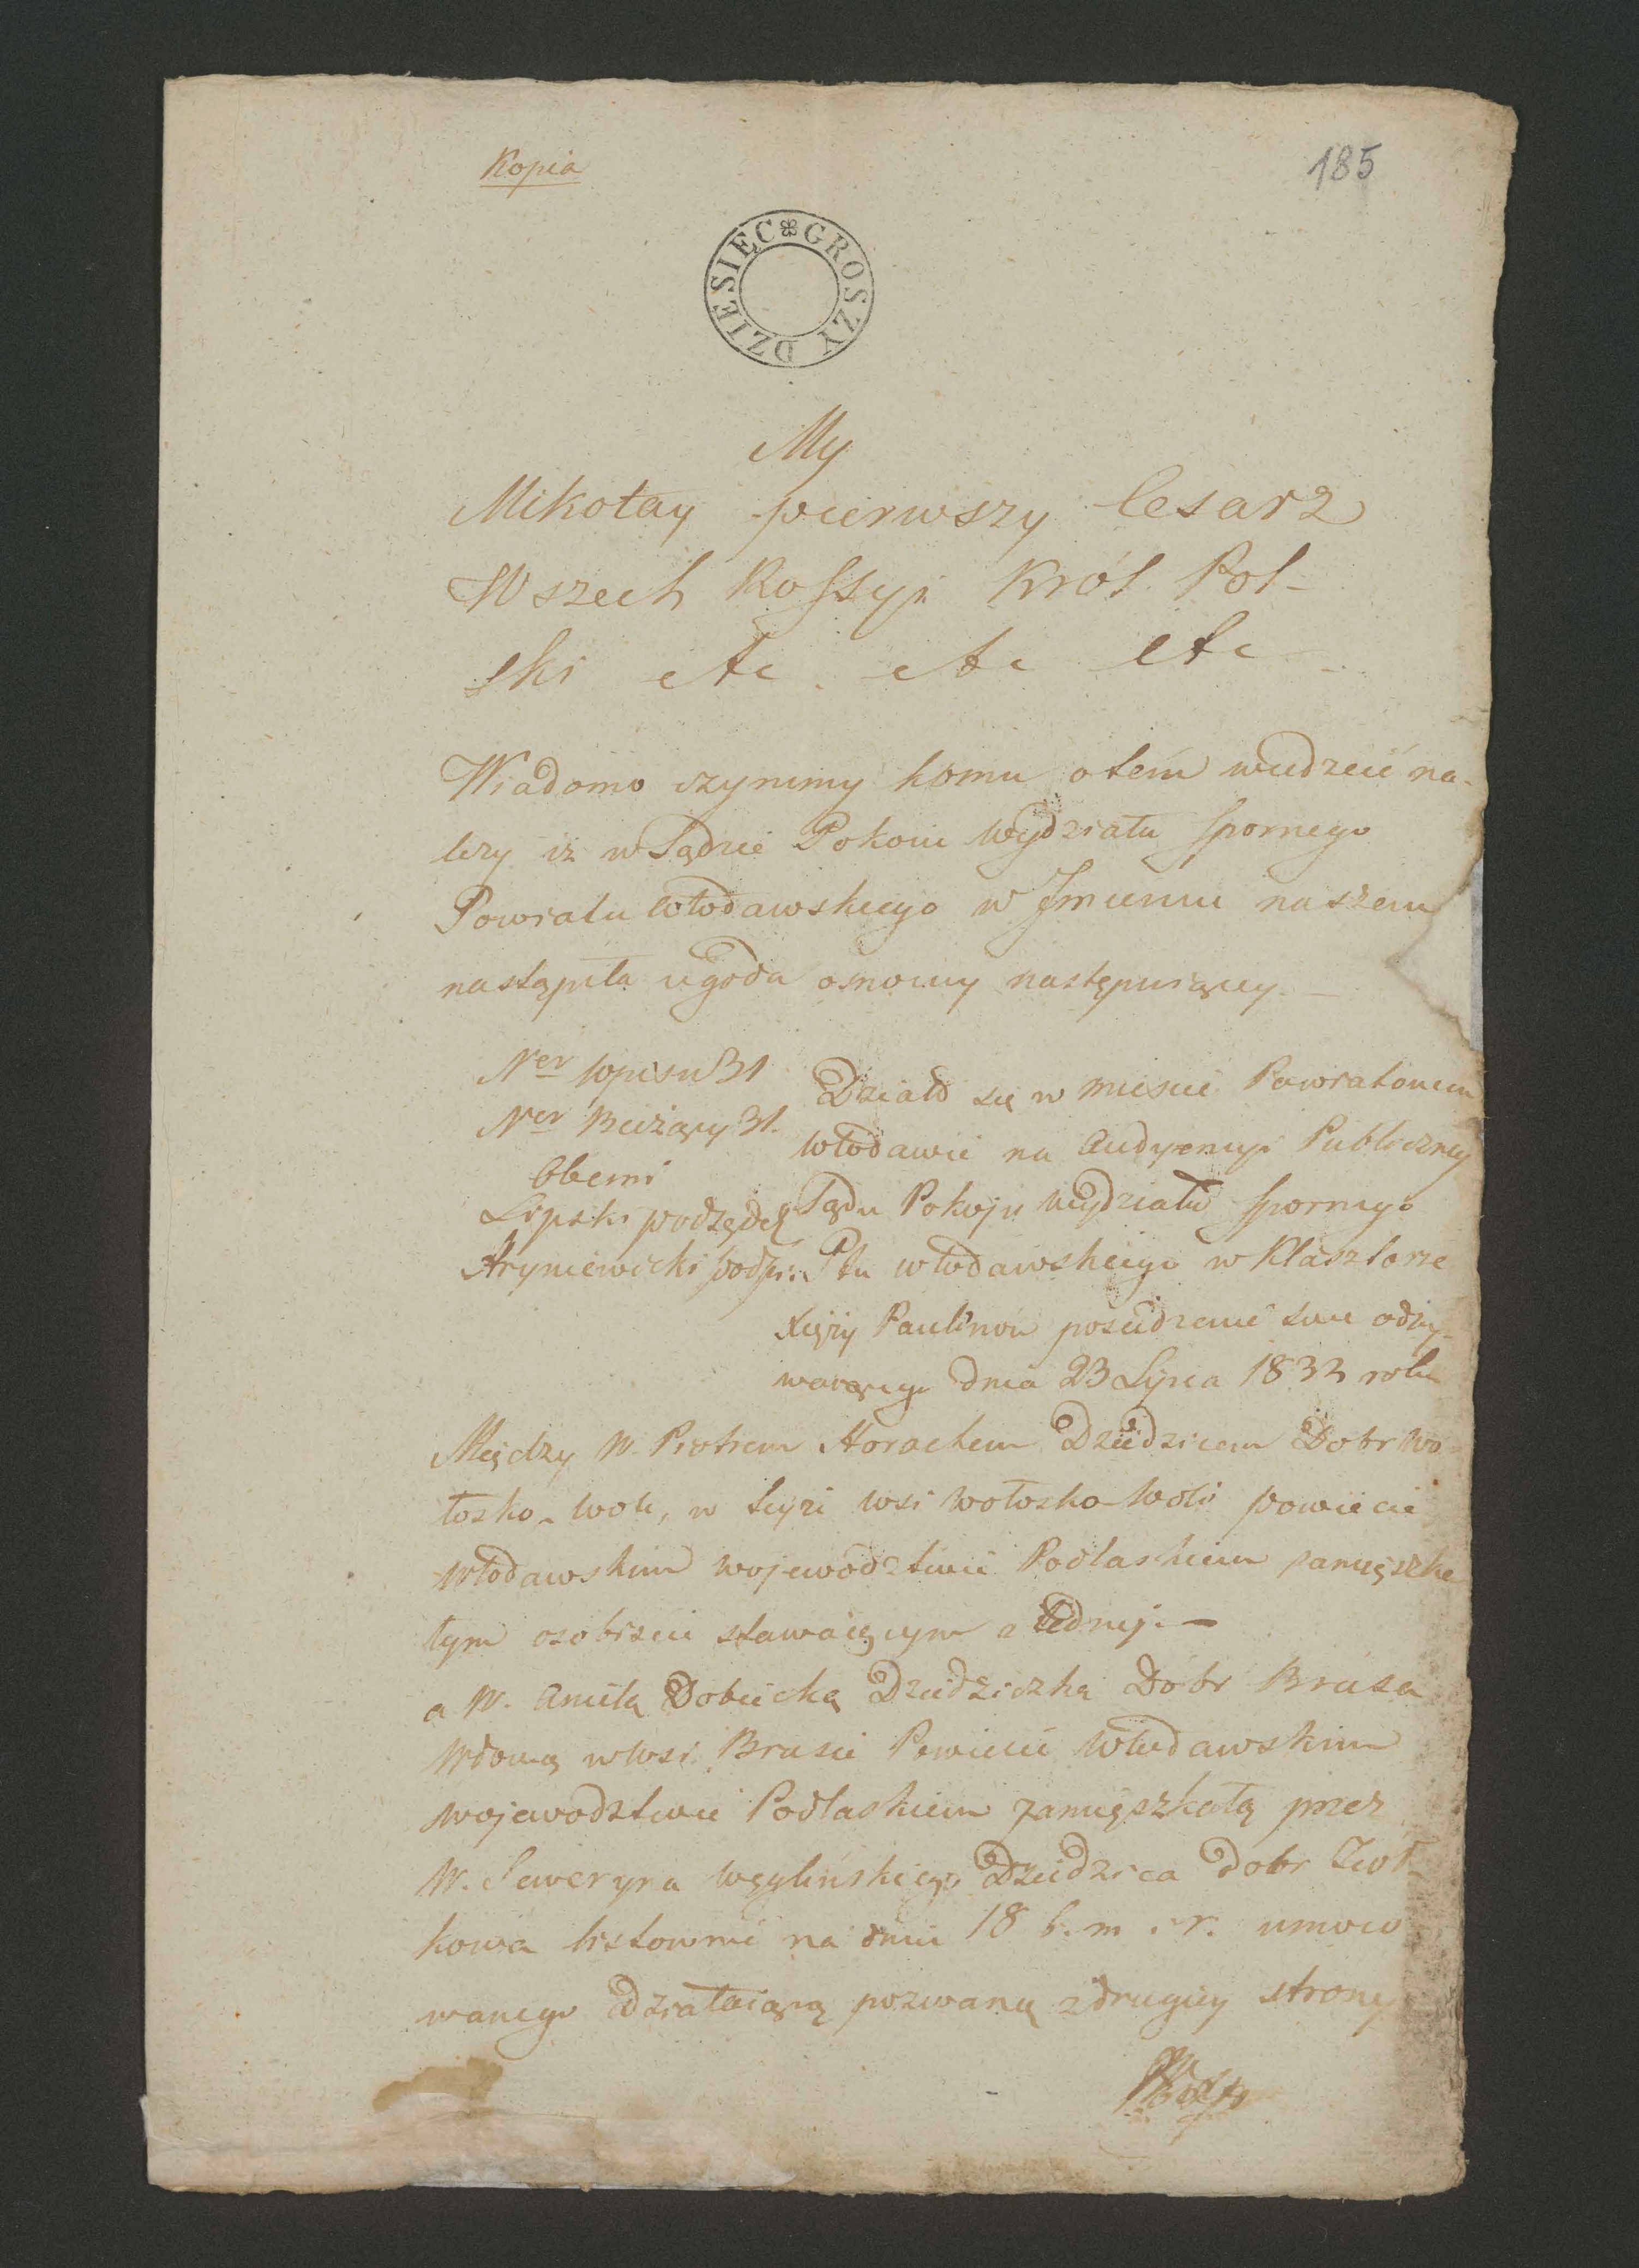 Kopia
185
DZIESIEC GROSZY
My
Mikołay pierwszy Cesarz
Wszech Rossyi Król Pol-
ski etc. etc etc
Wiadomo czynimy komu o tém wiedzieć na-
leży iż w Sądzie Pokoiu Wydziału Spornego
Powiatu Włodawskiego w Jmieniu naszem
nastąpiła ugoda osnowy następuiący. —
Ner wpisu 31
Ner Bieżący 31.
Obecni
Lipski podsędek
Hryniewicki podpi:
Działo się w mieście Powiatowem
Włodawie na Audyencyi Publiczney
Sądu Pokoju Wydziału Spornego
Ptu Włodawskiego w Klasztorze
Xięży Paulinów posiedzenie swe odby-
waiącego dnia 23 Lipca 1833 roku
Między W. Piotrem Horachem Dziedzicem Dobr Wo-
łosko-Woli, w teyże wsi Wołosko-Woli powiecie
Włodawskim Województwie Podlaskiem zamięszka
łym osobiście stawaiącym z iednej. —
a W. Anielą Dobiecką Dziedziczką Dóbr Brusa
Wdową w wsi Brusie Powiecie Włodawskim
Wojewodztwie Podlaskiem zamięszkałą przez
W. Seweryna Węglińskiego Dziedzica dobr Żuł-
kowa listownie na dniu 18 b. m. i r. umoco
wanego działaiącą pozwaną z drugiey strony